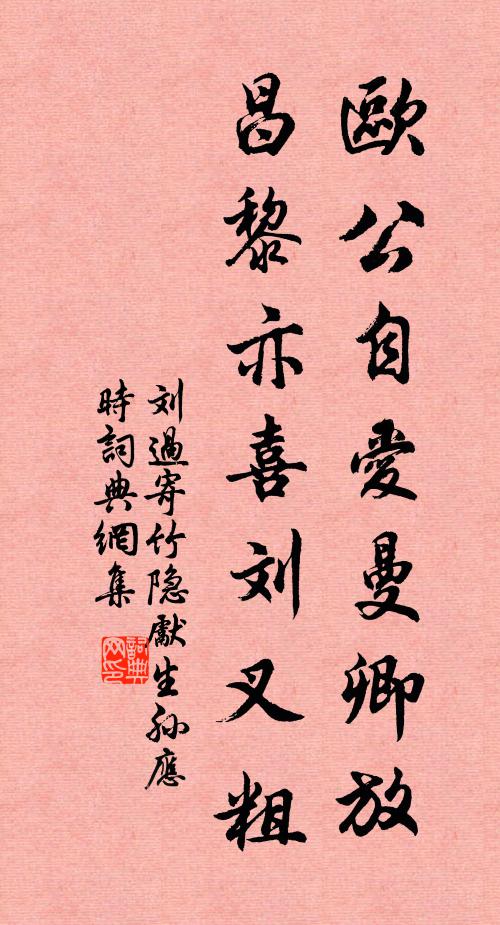 歐公自愛曼卿放
昌黎亦喜刘叉粗
刘過寄竹隐獻生孙應
時詞典網集
詞典网印